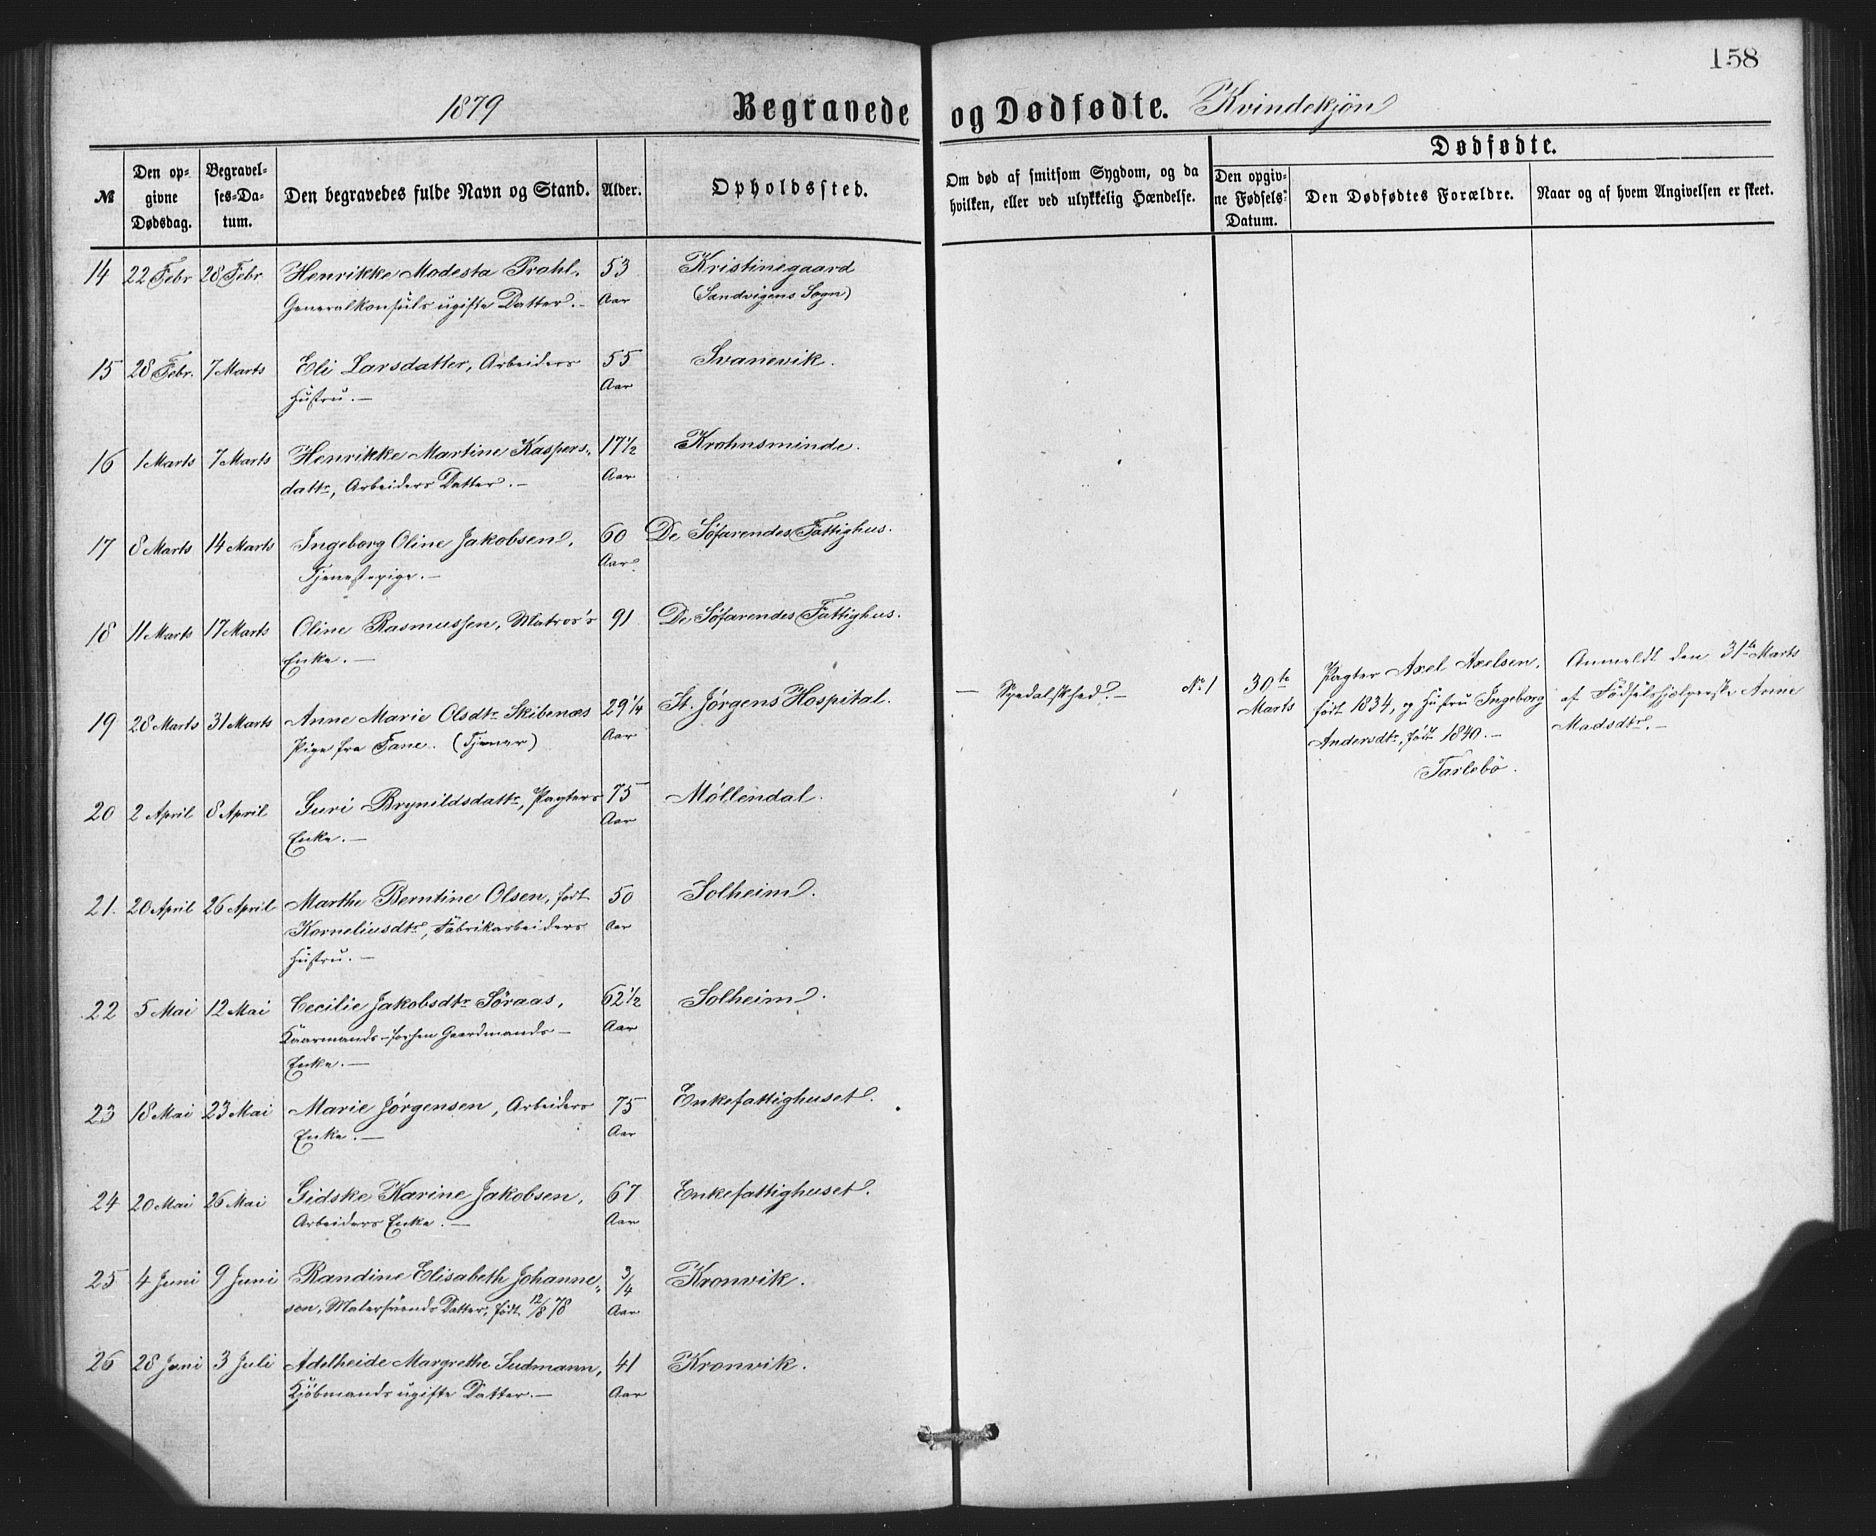 158
1879 Begravede og Dødfødte. Kvindekjøn
Dødfødte.
№
Den op-
givne
Dødsdag.
Begravel-
ses-Da-
tum.
Den begravedes fulde Navn og Stand.
Alder.
Opholdssted.
Om død af smitsom Sygdom, og da
hvilken, eller ved ulykkelig Hændelse.
Den opgiv-
ne Fødsels-
Datum.
Den Dødfødtes Forældre.
Naar og af hvem Angivelsen er skeet.
14 22 Febr 28 Febr Henrikke Modesta Prahl, 53 Kristinegaard
Generalkonsuls ugifte Datter. — Aar (Sandvigens Sogn)
15 28 Febr. 7 Marts Eli Larsdatter, Arbeiders 55 Svanevik.
Hustru. — Aar
16 1 Marts 7 Marts Henrikke Martine Kaspers- 17 1/2 Krohnsminde.
datr, Arbeiders Datter. — Aar
17 8 Marts 14 Marts Ingeborg Oline Jakobsen, 60 De Søfarendes Fattighus.
Tjenestepige. — Aar
18 11 Marts 17 Marts Oline Rasmussen, Matros's 91 De Søfarendes Fattighus.
Enke. —
19 28 Marts 31 Marts Anne Marie Olsdtr Skibenæs 29 1/4 St. Jørgens Hospital. — Spedalskhed. —
Pige fra Fane. (Tjener) Aar
No 1 30te
Marts
Pagter Axel Axelsen,
født 1834, og Hustru Ingeborg
Andersdtr, født 1840. —
Tarlebø.
Anmeldt den 31te Marts
af Fødselshjelperske Anne
Madsdtr. —
20 2 April 8 April Guri Brynildsdattr, Pagters 75 Møllendal.
Enke. — Aar
21. 20 April 26 April Marthe Berntine Olsen, født 50 Solheim.
Korneliusdtr, Fabrikarbeiders Aar
Hustru. —
22 5 Mai 12 Mai Cecilie Jakobsdtr Søraas, 62 1/2 Solheim.
Kaarmands- forhen Gaardmands- Aar
Enke. —
23 18 Mai 23 Mai Marie Jørgensen, Arbeiders 75 Enkefattighuset.
Enke. — Aar
24 20 Mai 26 Mai Gidske Karine Jakobsen, 67 Enkefattighuset.
Arbeiders Enke. — Aar
25 4 Juni 9 Juni Randine Elisabeth Johanne- 3/4 Kronvik.
sen, Malersvends Datter, født 12/8 78 Aar
26 28 Juni 3 Juli Adelheide Margrethe Sudmann, 41 Kronvik.
Kjøbmands ugifte Datter. — Aar